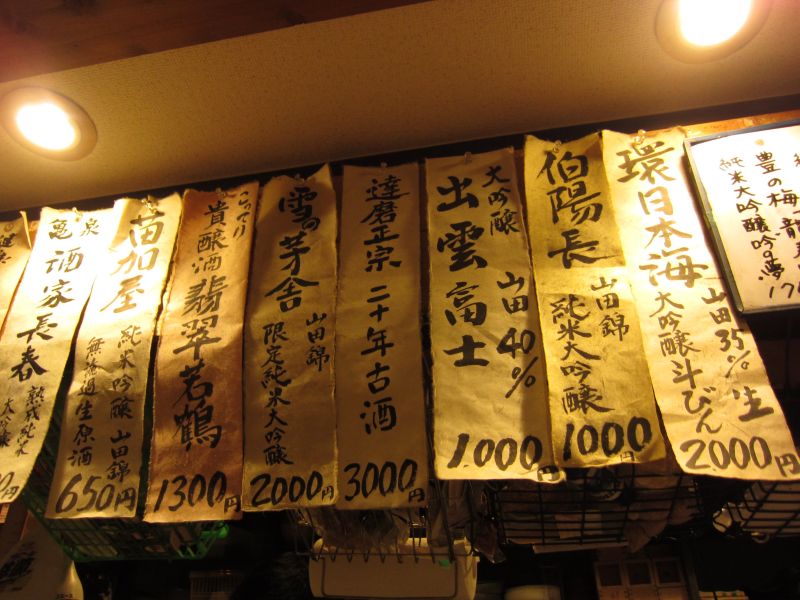 豊の梅
純米大吟醸吟の夢
環日本海
大吟醸斗びん
山田35%生
2000円
伯陽長
山田錦
純米大吟醸
1000円
大吟醸
出雲富士
山田40%
1000円
達磨正宗二十年古酒
3000円
雪の茅舎
山田錦
限定純米大吟醸
2000円
こってり
貴醸酒
翡翠若鶴
1300円
苗加屋
純米吟醸山田錦
無濾過生原酒
650円
亀泉
酒家長春
熟成純米
大吟醸
達磨